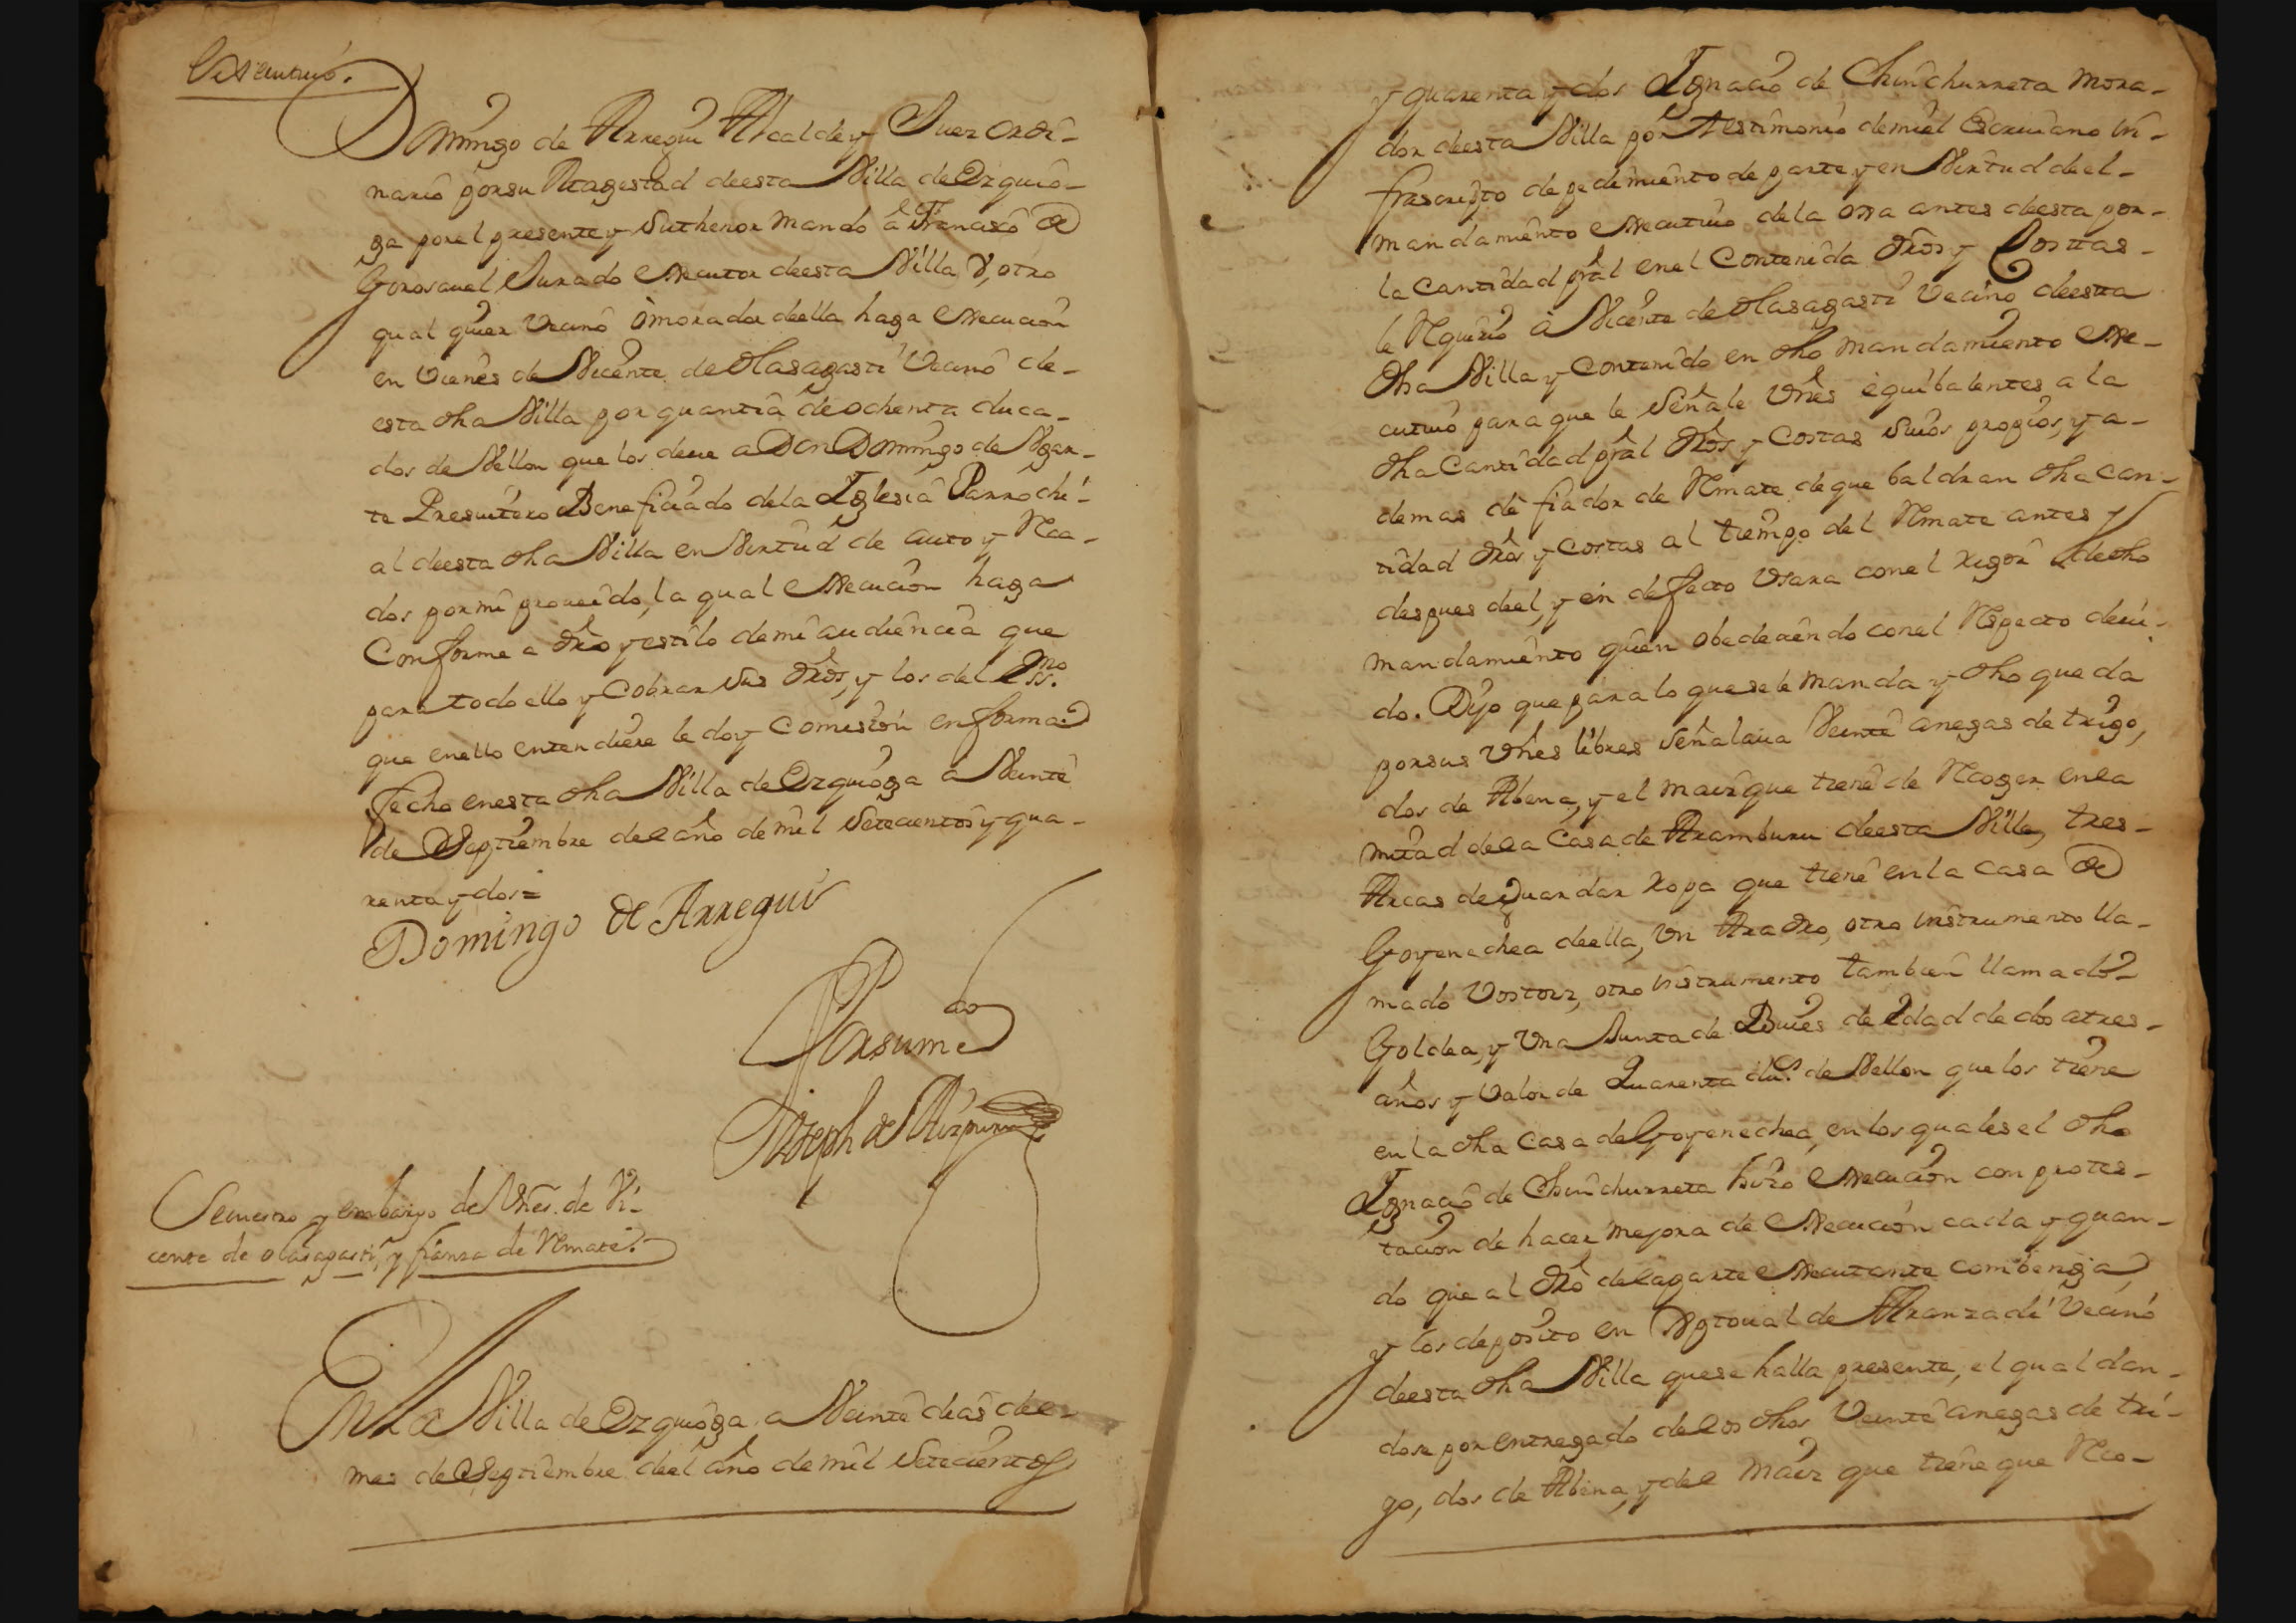 Executivo.
Domingo de Arregui Alcalde y Juez ordi-
nario por su Magestad deesta Villa de Ezquio-
ga por el presente y su thenor mando â Francisco de
Gorosavel Jurado executor deesta Villa V, otro
qual quier vecino ô morador deella haga execucion
en vienes de Vicente de Olasagasti vecino de-
esta dha Villa por quantia de ochenta duca-
dos de Vellon que los deve a Don Domingo de Ugar-
te Presvitero Beneficiado dela Iglesia Parrochi-
al deesta dha Villa en Virtud de auto y Rca-
dos por mi proveido, la qual execucion haga
Conforme a dro y estilo de mi audiencia que
para todo ello y Cobrar sus dros, y los del essno.
que enello entendiere le doy comision en forma
fecho enesta dha Villa de Ezquioga â Veinte
de Septiembre del año de mil Setecientos y qua-
renta y dos=
Domingo de Arregui
Por su mdo
Joseph de Aizpuru
Secuestro y embargo de Vnes. de Vi-
cente de olasagasti, y fianza de Rmate.
En la Villa de Ezquioga, a Veinte dias del
mes de Septiembre deel año de mil Setecientos
y quarenta y dos Ignacio de Chinchurreta mora-
dor deesta Villa por testimonio de mi el Escrivano in-
frascripto de pedimiento de parte y en Virtud deel-
mandamiento executivo dela ora antes deesta por-
la cantidad pral enel Contenida dros y Costtas-
le Rquirio â Vicente de Olasagasti vecino deesta
dha Villa y contenido en dho mandamiento exe-
cutivo para que le señale Vnes equibalentes a la
dha Cantidad pral dros y Costas suios propios, y a-
demas de fiador de Rmate de que baldran dha can-
tidad dros y costas al tiempo del Rmate antes y
despues deel, y en defecto Vsara con el rigor de dho
mandamiento quien obedeciendo con el Rspecto devi-
do. Dijo que para lo que se le manda y dho queda
por sus Vnes libres señalava Veinte anegas de trigo,
dos de Abena, y el maiz que tiene de Rcoger en la
mitad de la Casa de Aramburu deesta Villa, tres-
Arcas de guardar ropa que tiene en la casa de
Goyenechea deella, Vn Aradro, otro instrumento lla-
mado Vostorz, otro instrumento tambien llamado-
Goldea, y Vna Junta de Bueis de edad de dos atres-
años y Valor de Quarenta dus. de Vellon que los tiene
en la dha casa de Goyenechea, en los quales el dho
Ignacio de Chinchurreta hizo execucion con protes-
tacion de hacer mejora de execucion cada y quan-
do que al dro de la parte executante combenga,
y los deposito en Xptoval de Aranzadi Vecino
deesta dha Villa que se halla presente, el qual dan-
dose por entregado de los dhos Veinte anegas de tri-
go, dos de Abena, y del maiz que tiene que Rco-